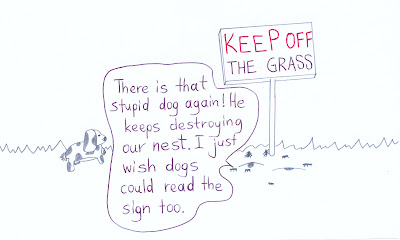 KEEP OFF
THE GRASS
There is that
stupid dog again! He
keeps destroying
our nest. I just
wish dogs
could read the
sign too.